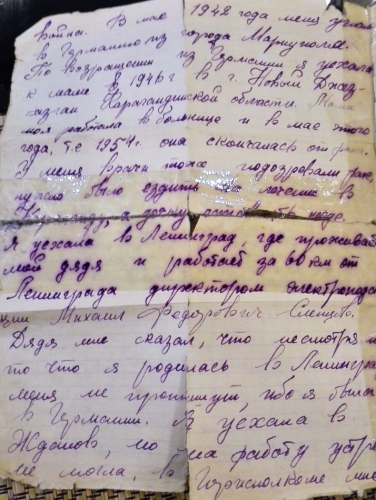 война. В мае 1942 года меня угнали
в Германию из города Мариуполя.
По возвращении из Германии я уехала
к маме в 1946 г в г. Новый Джаз-
казган Карагандинской области. Мама
моя работала в больнице и в мае этого
года, т.е 1954 г. она скончалась от рака.
У меня врачи тоже подозревали рак,
нужно было ездить лечение в
Я уехала в Ленинград, где проживал
мой дядя и работает за 80 км от
Ленинграда директором электростан
ции Михаил Федорович
Дядя мне сказал, что несмотря на
то что я родилась в Ленинград
меня не пропишут, ибо я была
в Германии. Я уехала в
Жданов, но на работу устр
не могла, в Горисполкоме мне